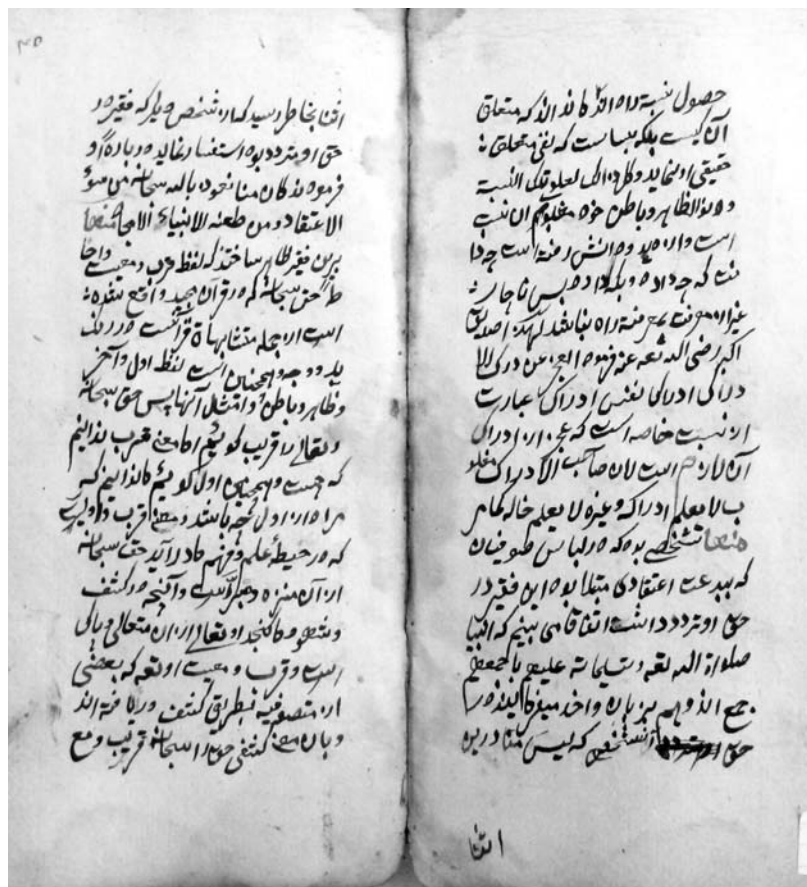 حصول نسبة راه اند کاند اند که متعلق
آن کیست بلکه بسا است که نفی متعلق
حقیقی او نماید وکل ذالک لعلو تلک النسبة
الظاهر وباطن خود مغلوبهم آن نسبت
است واز دید ودانش رفته است چه دا
ند که چه داده وبکه داده پس ناچار
غیر از معرفت بمعرفة راه نباشد لهذا صدیق
اکبر رضی الله تعه عنه فرموده العجز عن درک الا
دراک ادراک نفس ادراک عبارت
از نسبت خاصه است که عجز از ادراک
آن لازم است لان صاحب الادراک مغلو
ب لا یعلم ادراکه وغیره لا یعلم حاله کما مر
منها شخصی بود که در لباس صوفیان
که ببدعت اعتقادی مبتلا بود این فقیر در
حق او تردد داشت اتفاقا می بینم که انبیا
صلواة الله تعه وتسلیماته علیهم باجمعهم
جمع اند وهم بزبان واحد میفرمایند در
حق آنشخص که لیس منا درین
اثنا
۳۵
اثنا بخاطر رسید که از شخص دیگر که فقیر در
حق او متردد بود استفسار نماید در باره او
فرمودند کان منا نعوذ بالله سبحانه من سوء
الاعتقاد ومن طعنه الانبیاء الامجاد منها
برین فقیر ظاهر ساختند که لفظ قرب ومعیت واحا
طه حق سبحانه که در قرآن مجید واقع شده
است از جمله متشابهاة قرآنست در رنگ
ید ووجه وهمچنین است لفظ اول وآخر
وظاهر وباطن وامثال آنها پس حق سبحانه
وتعالے را قریب گوئیم اما معنے قرب ندانیم
که چیست وهمچنین اول گوئیم اما ندانیم که
مراد از اول چه باشد ومعنے قرب واولیت
که در حیطه علم وفهم ما در آید حق سبحانه
از آن منزه ومبراست وآنچه در کشف
وشهود ما گنجد او تعالے از آن متعالی وپاک
است وقرب ومعیت او تعه که بعضی
از متصوفیه بطریق کشف دریافته اند
وبآن معنے کشفی حق را سبحانه قریب ومع